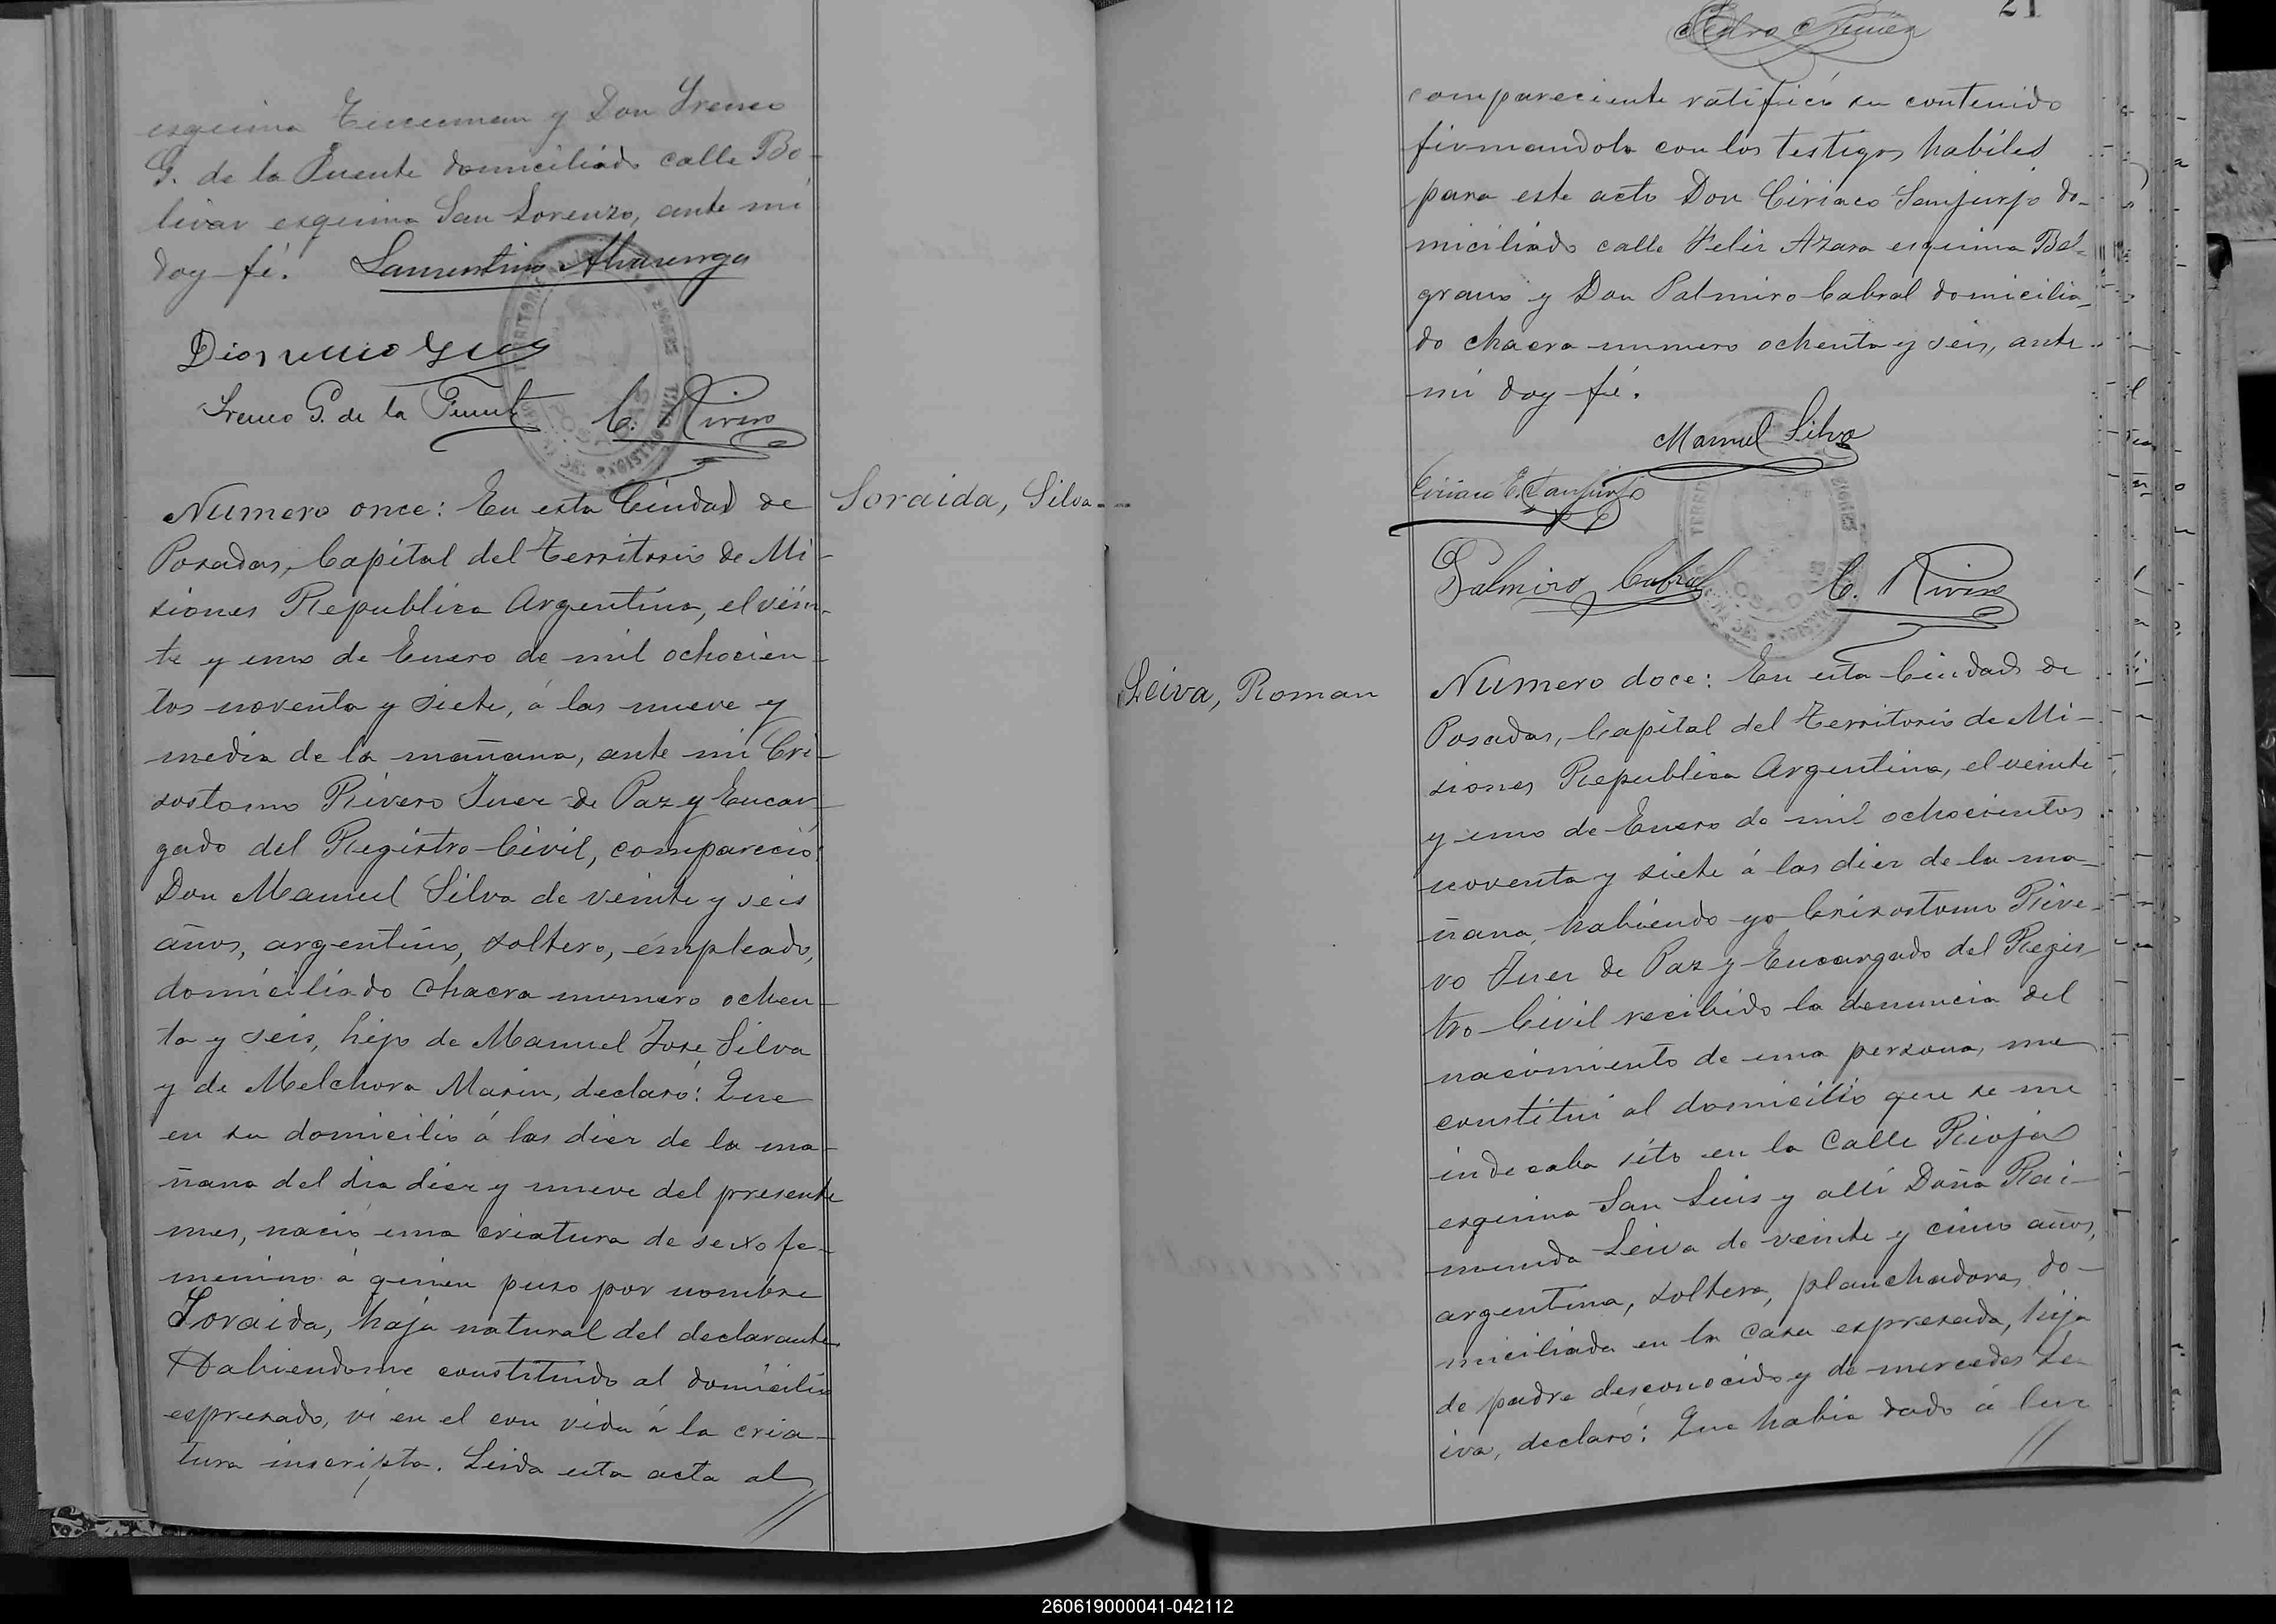 esquina Tucuman y Don Ireneo
G. de la Puente domiciliado calle Bo-
livar esquina San Lorenzo, ante mi
doy fé. Laurentino Alvarenga
Ireneo G. de la Puente C. Rivero
Numero once: En esta Ciudad de
Soraida, Silva
Posadas, Capital del Territorio de Mi-
siones Republica Argentina, el vein-
te y uno de Enero de mil ochocien-
tos noventa y siete, á las nueve y
media de la mañana, ante mi Cri-
sostomo Rivero Juez de Paz y Encar-
gado del Registro Civil, compareció
Don Manuel Silva de veinte y seis
años, argentino, soltero, empleado,
domiciliado chacra numero ochen-
ta y seis, hijo de Manuel José Silva
y de Melchora Marin, declaró: Que
en su domicilio á las diez de la ma-
ñana del dia diez y nueve del presente
mes, nació una criatura de sexo fe-
menino á quien puso por nombre
Soraida, haja natural del declarante
Habiendome constituido al domicilio
espresado, vi en el con vida á la cria-
tura inscripta. Leida esta acta al
//
21
Pedro Nuñez
compareciente ratificó su contenido
firmandola con los testigos habiles
para este acto Don Ciriaco Sanjurjo do-
miciliado calle Felix Azara esquina Bel-
grano y Don Palmiro Cabral domicilia-
do chacra numero ochenta y seis, ante
mi doy fé.
Manuel Silva
Ciriaco E. Sanjurjo
Palmiro Cabral C. Rivero
Leiva, Roman
Numero doce: En esta Ciudad de
Posadas, Capital del Territorio de Mi-
siones Republica Argentina, el veinte
y uno de Enero de mil ochocientos
noventa y siete á las diez de la ma-
ñana, habiendo yo Crisostomo Rive-
ro Juez de Paz y Encargado del Regis
tro Civil recibido la denuncia del
nacimiento de una persona, me
constitui al domicilio que se me
indecaba sito en la Calle Rioja
esquina San Luis y allí Doña Rai-
munda Leiva de veinte y cinco años,
argentina, soltera, planchadora, do-
miciliada en la casa espresada, hija
de padre desconocido y de mercedes Le
iva, declaró: Que habia dado á luz
//
260619000041-042112